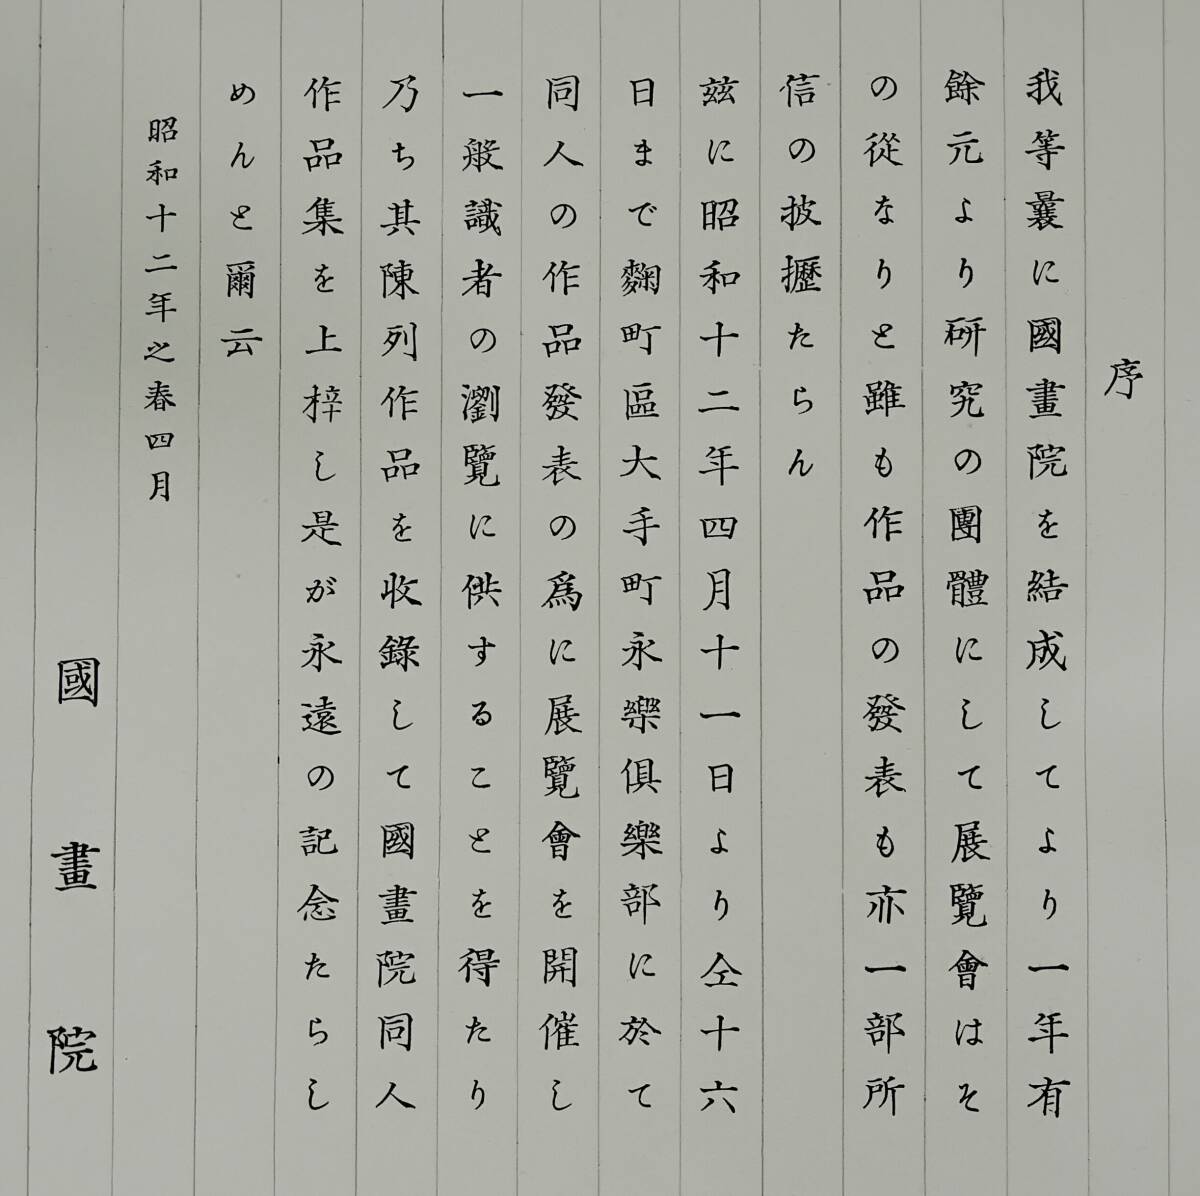 序
我等曩に國畫院を結成してより一年有
餘元より硏究の團體にして展覽會はそ
の從なりと雖も作品の發表も亦一部所
信の披攊たらん
玆に昭和十二年四月十一日より仝十六
日まで麴町區大手町永樂俱樂部に於て
同人の作品發表の爲に展覽會を開催し
一般識者の瀏覽に供することを得たり
乃ち其陳列作品を收錄して國畫院同人
作品集を上梓し是が永遠の記念たらし
めんと爾云
昭和十二年之春四月
國畫院